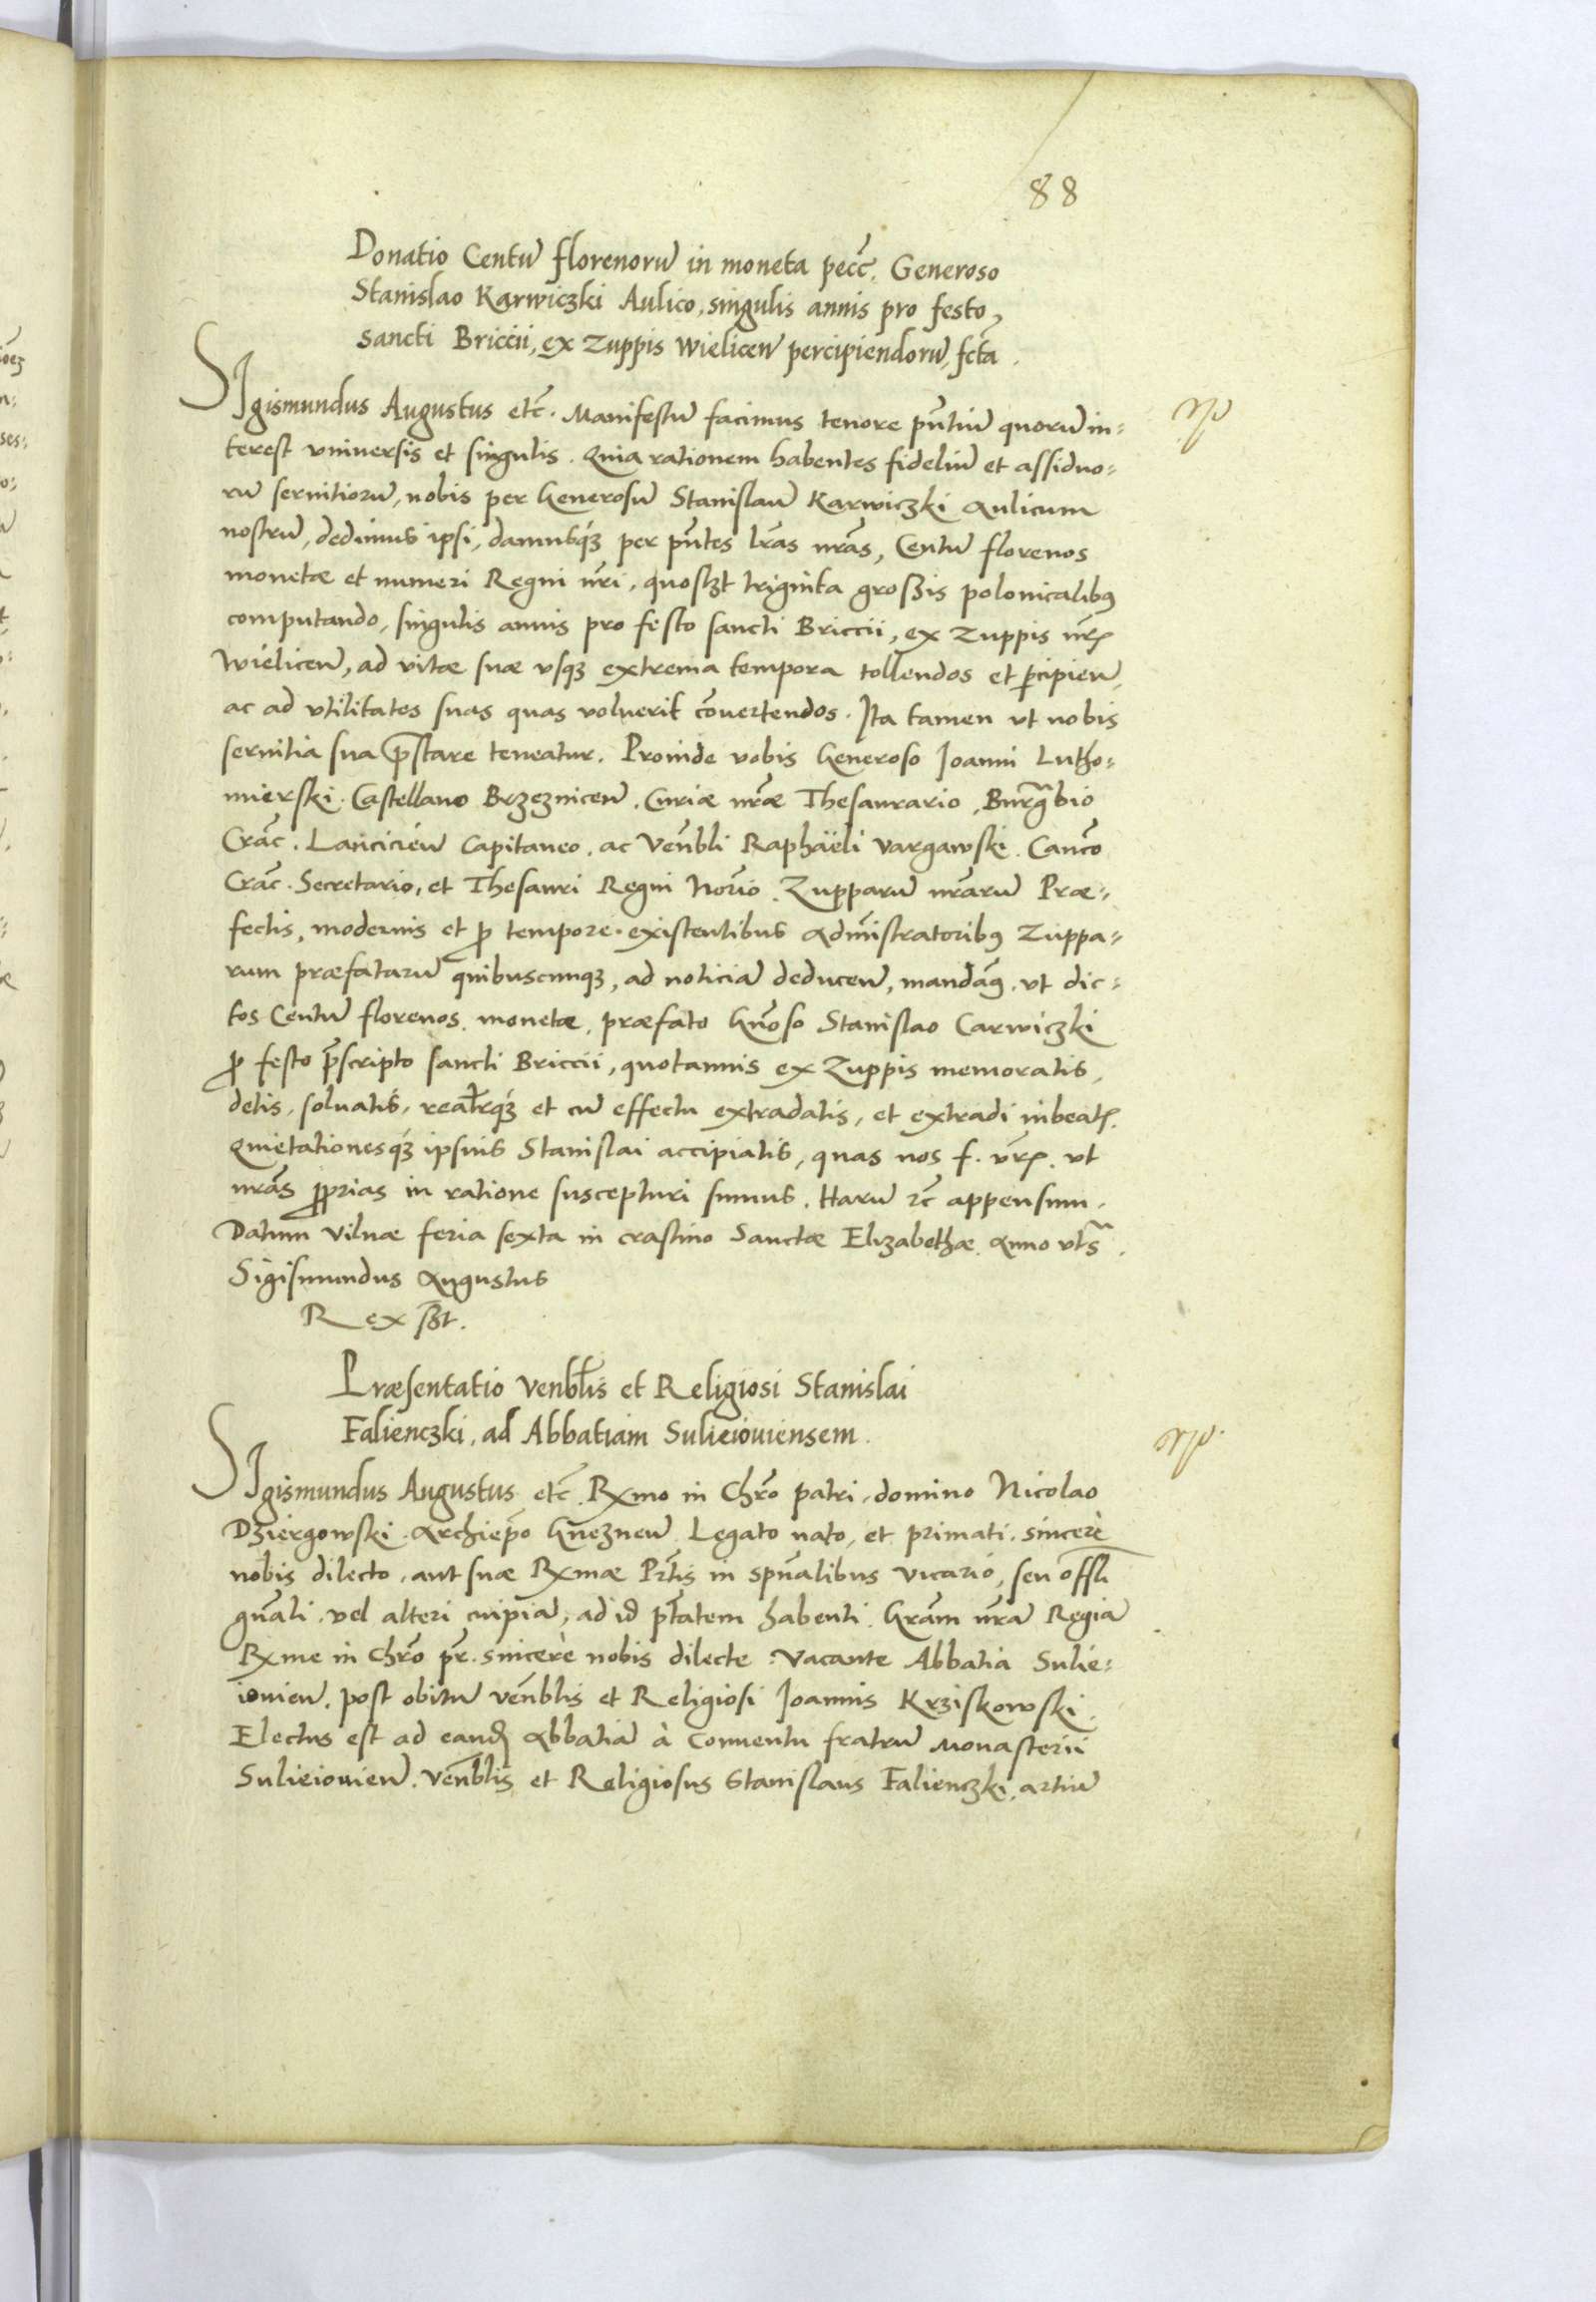 88
Donatio Centũ florenorũ in moneta pecc̃. Generoso
Stanislao Karwiczki Aulico, singulis annis pro festo,
sancti Briccii, ex Zuppis Wielicen̄ percipiendorũ, fcta.
SIgismundus Augustus etc̃. Manifestũ facimus tenore pn̄tiũ quorũ in=
terest vniuersis et singulis. Quia rationem habentes fideliũ et assiduo=
rũ seruitiorũ, nobis per Generosũ Stanislaũ Karwiczki Aulicum
nostrũ, dedimus ipsi, damusq́ꝫ per pn̄tes lr̃as nr̃as, Centũ florenos
monetæ et numeri Regni nr̃i, quoslꝫt triginta grossis polonicalibꝰ
computando, singulis annis pro festo sancti Briccii, ex Zuppis nr̃ꝭ
Wielicen̄, ad vitæ suæ vsqꝫ extrema tempora tollendos et ꝑcipien̄,
ac ad vtilitates suas quas voluerit cõuertendos. Ita tamen vt nobis
seruitia sua p̄stare teneatur. Proinde vobis Generoso Joanni Lutho=
mierski. Castellano Brzeznicen̄. Curiæ nr̃æ Thesaurario, Burg̃bio
Crac̃. Lancicień Capitaneo. ac Ven̄bli Raphäeli Vargawski. Canco
Crac̃. Secretario, et Thesauri Regni Nor̃io. Zupparũ nr̃arũ Præ=
fectis, modernis et ꝓ tempore existentibus Adm̃istratoribꝰ Zuppa=
rum præfatarũ quibuscunqꝫ, ad noticiã deducen̄, mandaꝰ. vt dic=
tos Centũ florenos monetæ, præfato Gn̄oso Stanislao Carwiczki
ꝓ festo p̄scripto sancti Briccii, quotannis ex Zuppis memoratis,
detis, soluatis, realr̃qꝫ et cũ effectu extradatis, et extradi iubeatꝭ.
Quietationesq́ꝫ ipsius Stanislai accipiatis, quas nos f. vr̃ꝭ. vt
nr̃as ꝓprias in ratione suscepturi sumus. Harũ ꝛc̃ appensum.
Datum Vilnæ feria sexta in crastino Sanctæ Elizabethæ Anno vts̃.
Sigismundus Augustus
Rex sst.
Præsentatio Venbłis et Religiosi Stanislai
Falienczki, ad Abbatiam Sulieiouiensem.
SIgismundus Augustus etc̃. Rx̃mo in Chr̃o patri, domino Nicolao
Dziergowski. Archiep̃o Gneznen̄ Legato nato, et primati. sincerè
nobis dilecto, aut suæ Rx̃mæ Pr̃tis in spũalibus vicario, seu offli
gn̄ali, vel alteri cuipiã, ad id pt̃atem habenti. Gr̃am nr̃ã Regiã
Rx̃me in Chr̃o pr̃. sincerè nobis dilecte. Vacante Abbatia Sulie=
iouien̄. post obitũ ven̄blis et Religiosi Joannis Krziskowski.
Electus est ad eandẽ Abbatiã à Conuentu fratrũ Monasterii
Sulieiouien̄. Ven̄blis et Religiosus Stanislaus Falienczki, artiũ